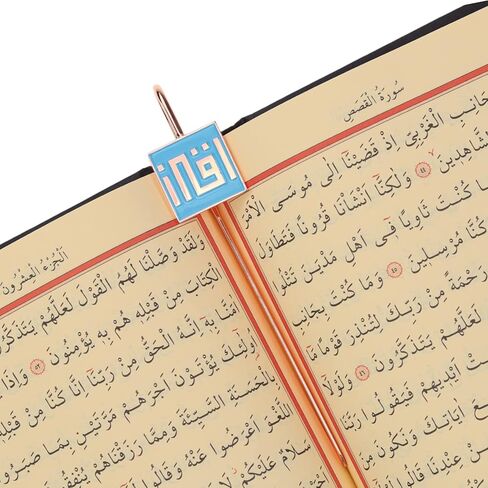 اقرأ
سُورَةُ الْقَصَصِ
جَانِبِ الْغَرْبِيِّ اِذْ قَضَيْنَٓا اِلٰى مُوسَى الْاَمْرَ
شَّاهِدِينَ ٤٤ وَلٰكِنَّٓا اَنْشَأْنَا قُرُونًا فَتَطَاوَلَ
كُنْتَ ثَاوِيًا فِٓى اَهْلِ مَدْيَنَ تَتْلُوا
كُنَّا مُرْسِلِينَ ٤٥ وَمَا كُنْتَ بِجَانِبِ
رَحْمَةً مِنْ رَبِّكَ لِتُنْذِرَ قَوْمًا مَٓا
لَعَلَّهُمْ يَتَذَكَّرُونَ ٤٦ وَلَوْلَٓا
اَيْدِيهِمْ فَيَقُولُوا رَبَّنَا
اٰيَاتِكَ وَنَكُونَ مِنَ
مِنْ عِنْدِنَا قَالُوا
اَلْجُزْءُ الْعِشْرُونَ
وَلَقَدْ وَصَّلْنَا لَهُمُ الْقَوْلَ لَعَلَّهُمْ يَتَذَكَّرُونَ
الْكِتَابَ مِنْ قَبْلِهِ هُمْ بِهِ يُؤْمِنُونَ ٥٢ وَاِذَا
اٰمَنَّا بِهِٓ اِنَّهُ الْحَقُّ مِنْ رَبِّنَٓا اِنَّا كُنَّا مِنْ
يُؤْتَوْنَ اَجْرَهُمْ مَرَّتَيْنِ بِمَا صَبَرُوا
بِالْحَسَنَةِ السَّيِّئَةَ وَمِمَّا رَزَقْنَاهُمْ يُنْفِقُونَ
اللَّغْوَ اَعْرَضُوا عَنْهُ وَقَالُوا
سَلَامٌ عَلَيْكُمْ